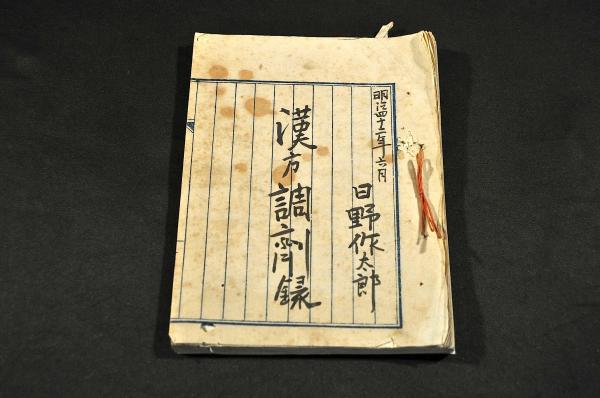 明治四十二年六月
日野作太郎
漢方調剤録